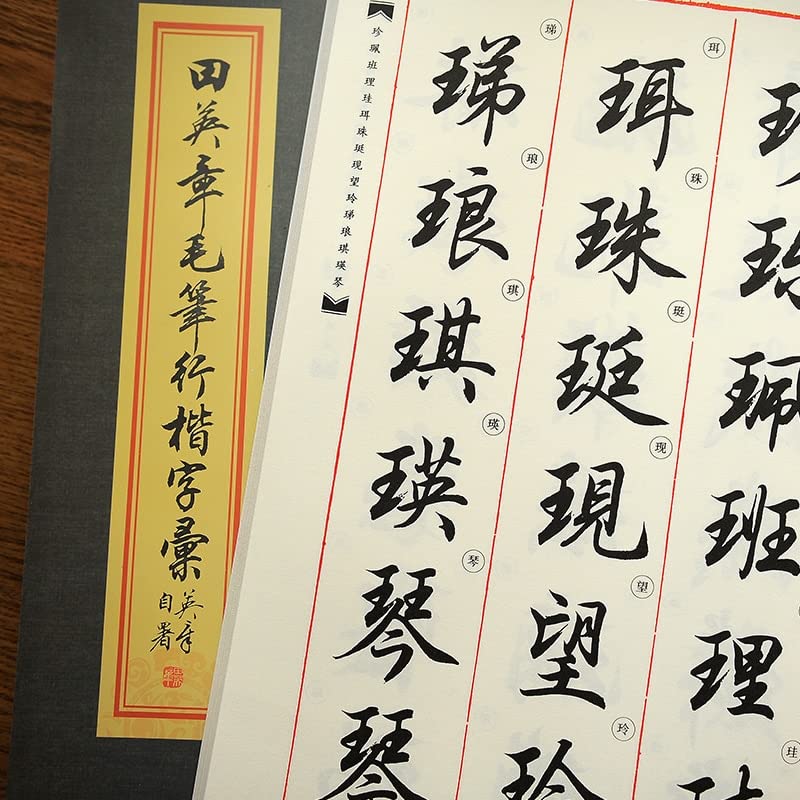 田英章毛筆行楷字彙
英章
自署
珍珮班理珪珥珠珽现望玲珶琅琪瑛琴
珮班理
珪
珥珠珽現望玲
珥
珠
珽
现
望
玲
珶琅琪瑛琴琴
珶
琅
琪
瑛
琴